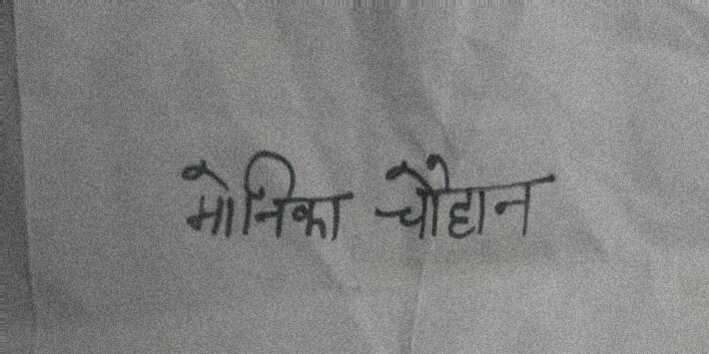 मोनिका चौहान